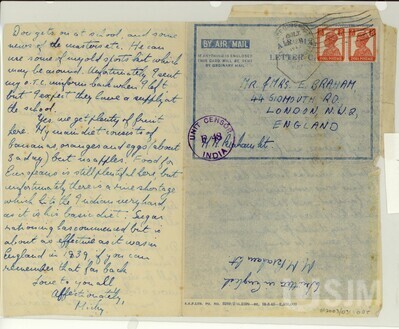 Don get on at school, and some
news of the masters etc. He can
use some of my old sports kit which
may be around. Unfortunately I sent
my O.T.C. uniform back when I left
but I expect they have a supply at
the school.
Yes we get plenty of fruit
here. My main diet consists of
bananas, oranges and eggs (about
3 a day) but no apples! Food for
Europeans is still plentiful here but
unfortunately there is a rice shortage
which hits the Indian very hard,
as it is his basic diet! Sugar
rationing has commenced but is
about as effective as it was in
England in 1939, if you can
remember that far back
Love to you all
affectionately,
BY AIR MAIL
AIR MAIL
LETTER
MR. & MRS. E. GRAHAM
44 SIDMOUTH RD.
LONDON. N.W.2.
ENGLAND
UNIT CENSOR
INDIA
Written in English
SJM